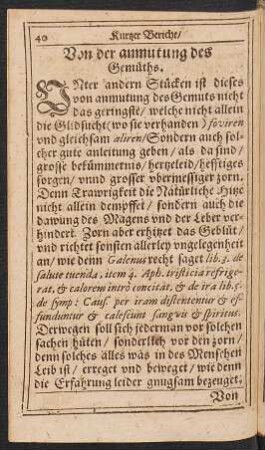 40 Kurtzer Bericht/
Von der anmutung des
Gemüths.
UNter andern Stücken ist dieses
von anmutung des Gemuts nicht
das geringste/ welche nicht allein
die Glidsucht (wo sie verhanden) foviren
vnd gleichsam aliren/ Sondern auch sol-
cher gute anleitung geben/ als da sind/
grosse bekümmernis/ hertzeleid/ hefftiges
sorgen/ vnnd grosser vbermessiger zorn.
Denn Trawrigkeit die Natürliche Hitze
nicht allein dempffet/ sondern auch die
dawung des Magens vnd der Leber ver-
hindert. Zorn aber erhitzet das Geblüt/
vnd richtet sonsten allerley vngelegenheit
an/ wie denn Galenus recht saget lib. 3. de
salute tuenda, item 4. Aph. tristicia refrige-
rat, & calorem intrò concitat, & de ira lib. 5.
de symp: Caus. per iram distententur & ef-
funduntur & calescunt sanguis & spiritus.
Derwegen soll sich jederman vor solchen
sachen hüten/ sonderlich vor den zorn/
denn solches alles was in des Menschen
Leib ist/ erreget vnd beweget/ wie denn
die Erfahrung leider gnugsam bezeuget.
Von